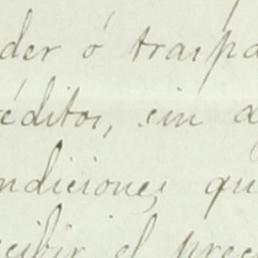 der ó traspa
éditos, sin
ndiciones qu
cibir el prec